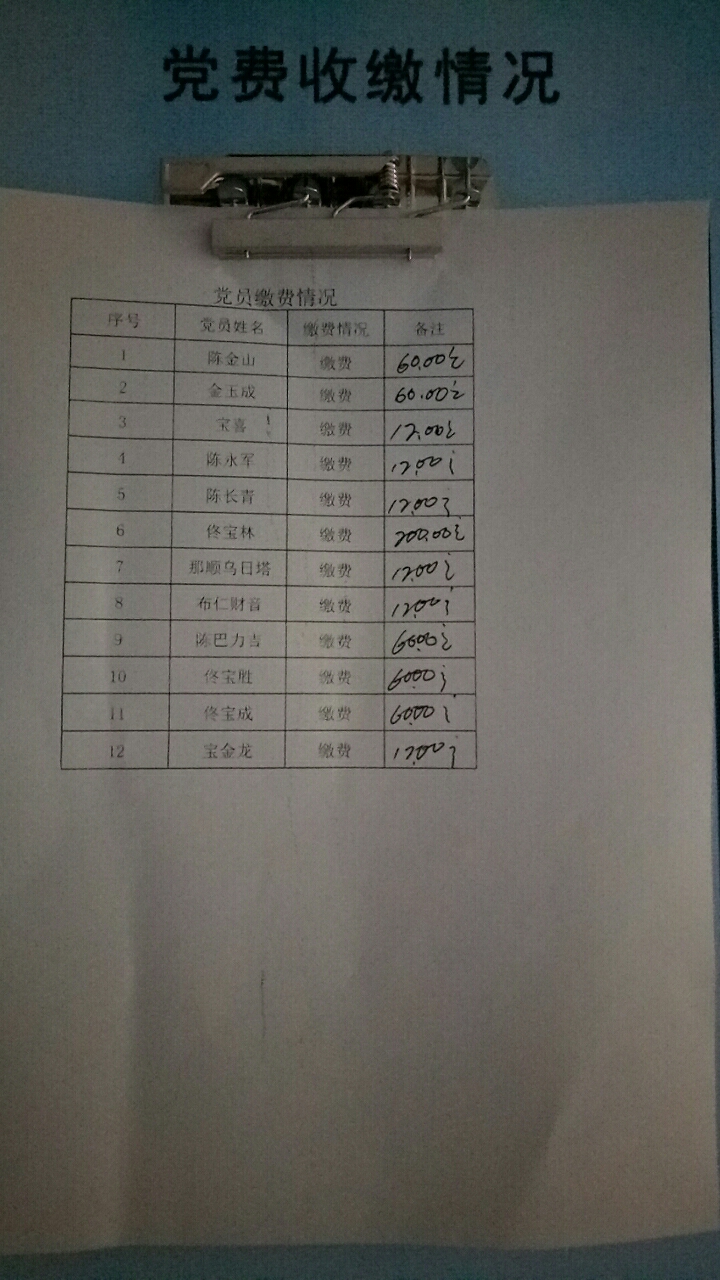 党费收缴情况
党员缴费情况
序号 党员姓名 缴费情况 备注
1 陈金山 缴费 60.00元
2 金玉成 缴费 60.00元
3 宝喜 缴费 12.00元
4 陈永军 缴费 12.00元
5 陈长青 缴费 12.00元
6 佟宝林 缴费 200.00元
7 那顺乌日塔 缴费 12.00元
8 布仁财音 缴费 12.00元
9 陈巴力吉 缴费 60.00元
10 佟宝胜 缴费 60.00元
11 佟宝成 缴费 60.00元
12 宝金龙 缴费 12.00元